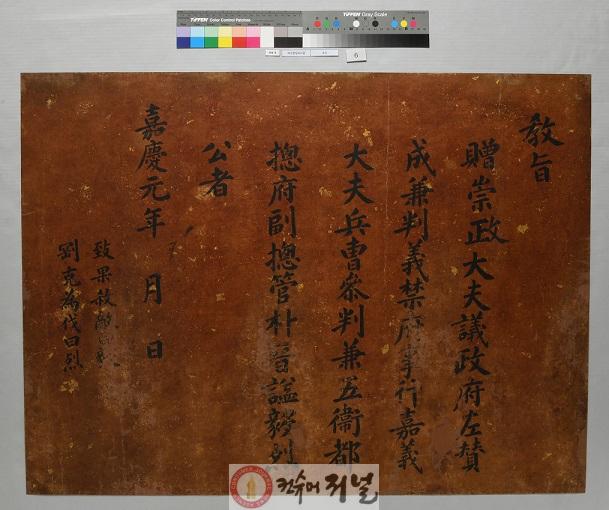 敎旨
贈崇政大夫議政府左贊
成兼判義禁府事行嘉義
大夫兵曺參判兼五衛都
摠府副摠管朴晉謚毅烈
公者
嘉慶元年 月 日
致果殺敵曰毅
劉克爲伐曰烈
TIFFEN Color Control Patches
TIFFEN Gray Scale
6
컨슈머저널